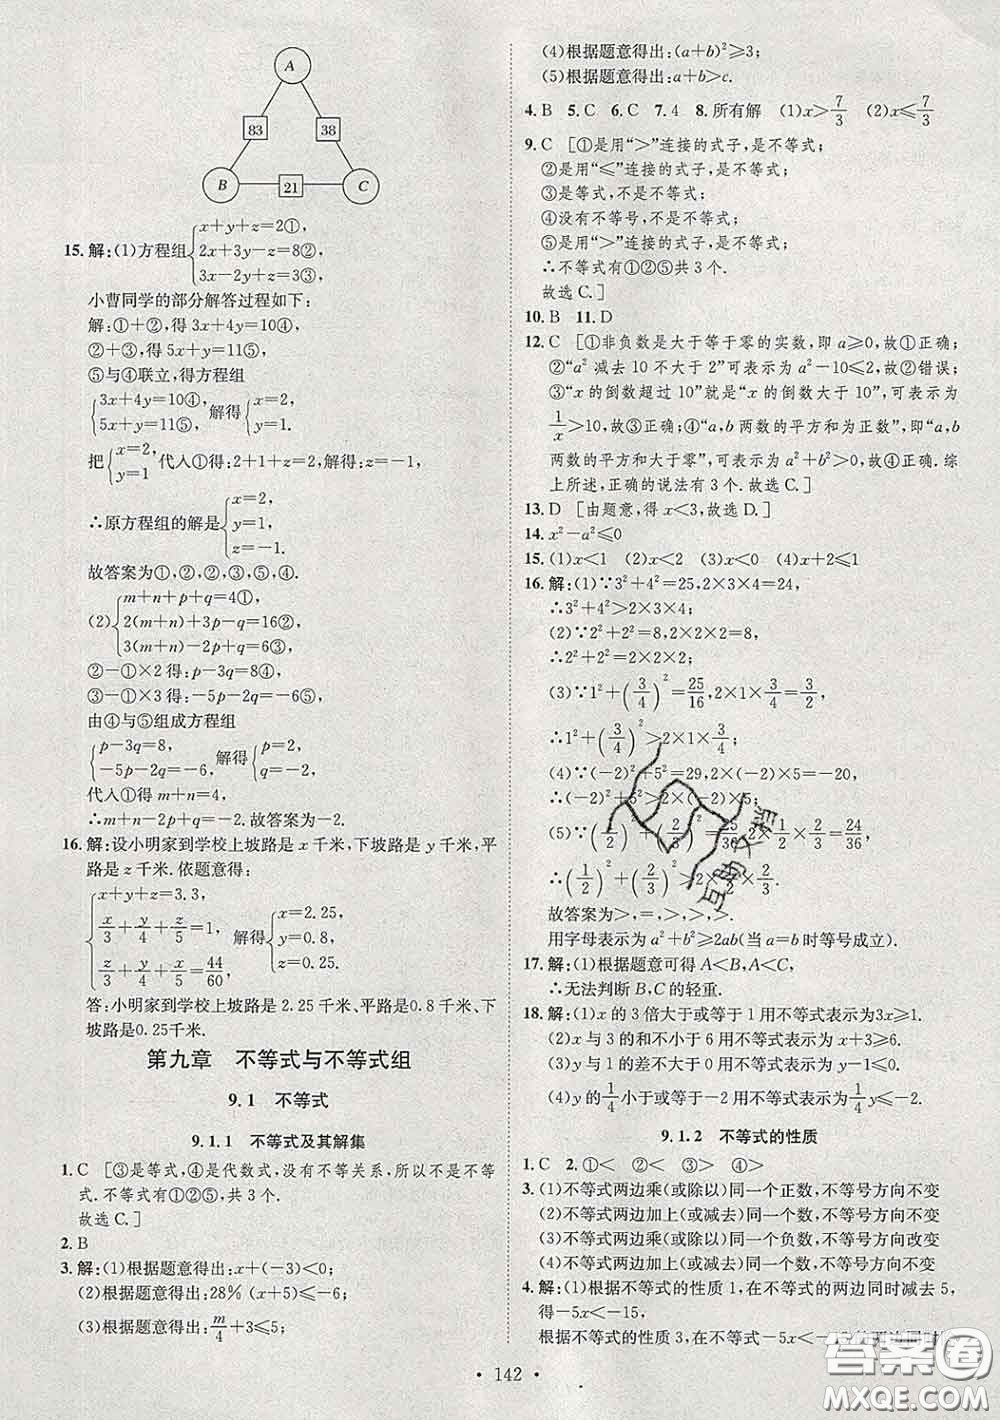 A
83
38
B
21
C
15.解:(1)方程组{x+y+z=2①,
2x+3y-z=8②,
3x-2y+z=3③,
小曹同学的部分解答过程如下:
解:①+②,得 3x+4y=10④,
②+③,得 5x+y=11⑤,
⑤与④联立,得方程组
{3x+4y=10④ 解得{x=2,
5x+y=11⑤ y=1,
把{x=2,代入①得:2+1+z=2,解得:z=-1,
y=1
∴原方程组的解是{x=2,
y=1,
z=-1.
故答案为①,②,②,③,⑤,④.
(2){m+n+p+q=4①,
2(m+n)+3p-q=16②,
3(m+n)-2p+q=6③,
②-①×2 得:p-3q=8④,
③-①×3 得:-5p-2q=-6⑤,
由④与⑤组成方程组
{p-3q=8, 解得{p=2,
-5p-2q=-6, q=-2,
代入①得:m+n=4,
∴m+n-2p+q=-2.故答案为-2.
16.解:设小明家到学校上坡路是 x 千米,下坡路是 y 千米,平
路是 z 千米.依题意得:
{x+y+z=3.3,
x/3+y/4+z/5=1, 解得{x=2.25,
y=0.8,
z/3+y/4+x/5=44/60 z=0.25.
答:小明家到学校上坡路是 2.25 千米、平路是0.8 千米、下
坡路是0.25千米.
第九章 不等式与不等式组
9.1 不等式
9.1.1 不等式及其解集
1.C [③是等式,④是代数式,没有不等关系,所以不是不等
式.不等式有①②⑤,共 3 个.
故选 C.]
2.B
3.解:(1)根据题意得出:x+(-3)<0;
(2)根据题意得出:28% (x+5)≤-6;
(3)根据题意得出:m/4+3≤5;
(4)根据题意得出:(a+b)²≥3;
(5)根据题意得出:a+b>c.
4.B 5.C 6.C 7.4 8.所有解 (1)x>7/3 (2)x≤7/3
9.C [①是用“>”连接的式子,是不等式;
②是用“≤”连接的式子,是不等式;
③是等式,不是不等式;
④没有不等号,不是不等式;
⑤是用“>”连接的式子,是不等式;
∴不等式有①②⑤共 3 个.
故选 C.]
10.B 11.D
12.C [①非负数是大于等于零的实数,即 a≥0,故①正确;
②“a² 减去 10 不大于 2”可表示为 a²-10≤2,故②错误;
③“x 的倒数超过 10”就是“x 的倒数大于 10”,可表示为
1/x>10,故③正确;④“a,b 两数的平方和为正数”,即“a,b
两数的平方和大于零”,可表示为 a²+b²>0,故④正确.综
上所述,正确的说法有 3 个.故选 C.]
13.D [由题意,得 x<3,故选 D.]
14.x²-a²≤0
15.(1)x<1 (2)x<2 (3)x<0 (4)x+2≤1
16.解:(1)∵3²+4²=25,2×3×4=24,
∴3²+4²>2×3×4;
(2)∵2²+2²=8,2×2×2=8,
∴2²+2²=2×2×2;
(3)∵1²+(3/4)²=25/16,2×1×3/4=3/2,
∴1²+(3/4)²>2×1×3/4;
(4)∵(-2)²+5²=29,2×(-2)×5=-20,
∴(-2)²+5²>2×(-2)×5;
(5)∵(1/2)²+(2/3)²=25/36,2×1/2×2/3=24/36,
∴(1/2)²+(2/3)²>2×1/2×2/3.
故答案为>,=,>,>,>.
用字母表示为 a²+b²≥2ab(当 a=b 时等号成立).
17.解:(1)根据题意可得 A<B,A<C,
∴无法判断 B,C 的轻重.
18.解:(1)x 的 3 倍大于或等于 1 用不等式表示为3x≥1.
(2)x 与 3 的和不小于 6 用不等式表示为 x+3≥6.
(3)y 与 1 的差不大于 0 用不等式表示为 y-1≤0.
(4)y 的1/4小于或等于-2 用不等式表示为1/4y≤-2.
9.1.2 不等式的性质
1.C 2.①< ②< ③> ④>
3.(1)不等式两边乘(或除以)同一个正数,不等号方向不变
(2)不等式两边加上(或减去)同一个数,不等号方向不变
(3)不等式两边乘(或除以)同一个负数,不等号方向改变
(4)不等式两边加上(或减去)同一个数,不等号方向不变
4.解:(1)根据不等式的性质 1,在不等式的两边同时减去 5,
得-5x<-15,
根据不等式的性质 3,在不等式-5x<-15
142
答案圈
MXQE.COM